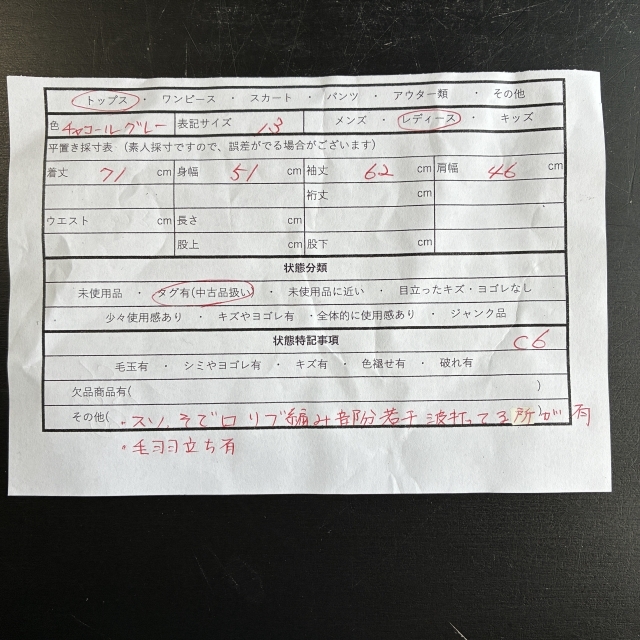 トップス ・ ワンピース ・ スカート ・ パンツ ・ アウター類 ・ その他
色 チャコールグレー 表記サイズ 13 メンズ ・ レディース ・ キッズ
平置き採寸表 (素人採寸ですので、誤差がでる場合がございます)
着丈 71 cm 身幅 51 cm 袖丈 62 cm 肩幅 46 cm
裄丈 cm
ウエスト cm 長さ cm
股上 cm 股下 cm
状態分類
未使用品 ・ タグ有(中古品扱い) ・ 未使用品に近い ・ 目立ったキズ・ヨゴレなし
・ 少々使用感あり ・ キズやヨゴレ有 ・全体的に使用感あり ・ ジャンク品
状態特記事項 C6
毛玉有 ・ シミやヨゴレ有 ・ キズ有 ・ 色褪せ有 ・ 破れ有
欠品商品有( )
その他( ・スソ、そで口リブ編み部分若干波打ってる所が有 )
・毛羽立ち有